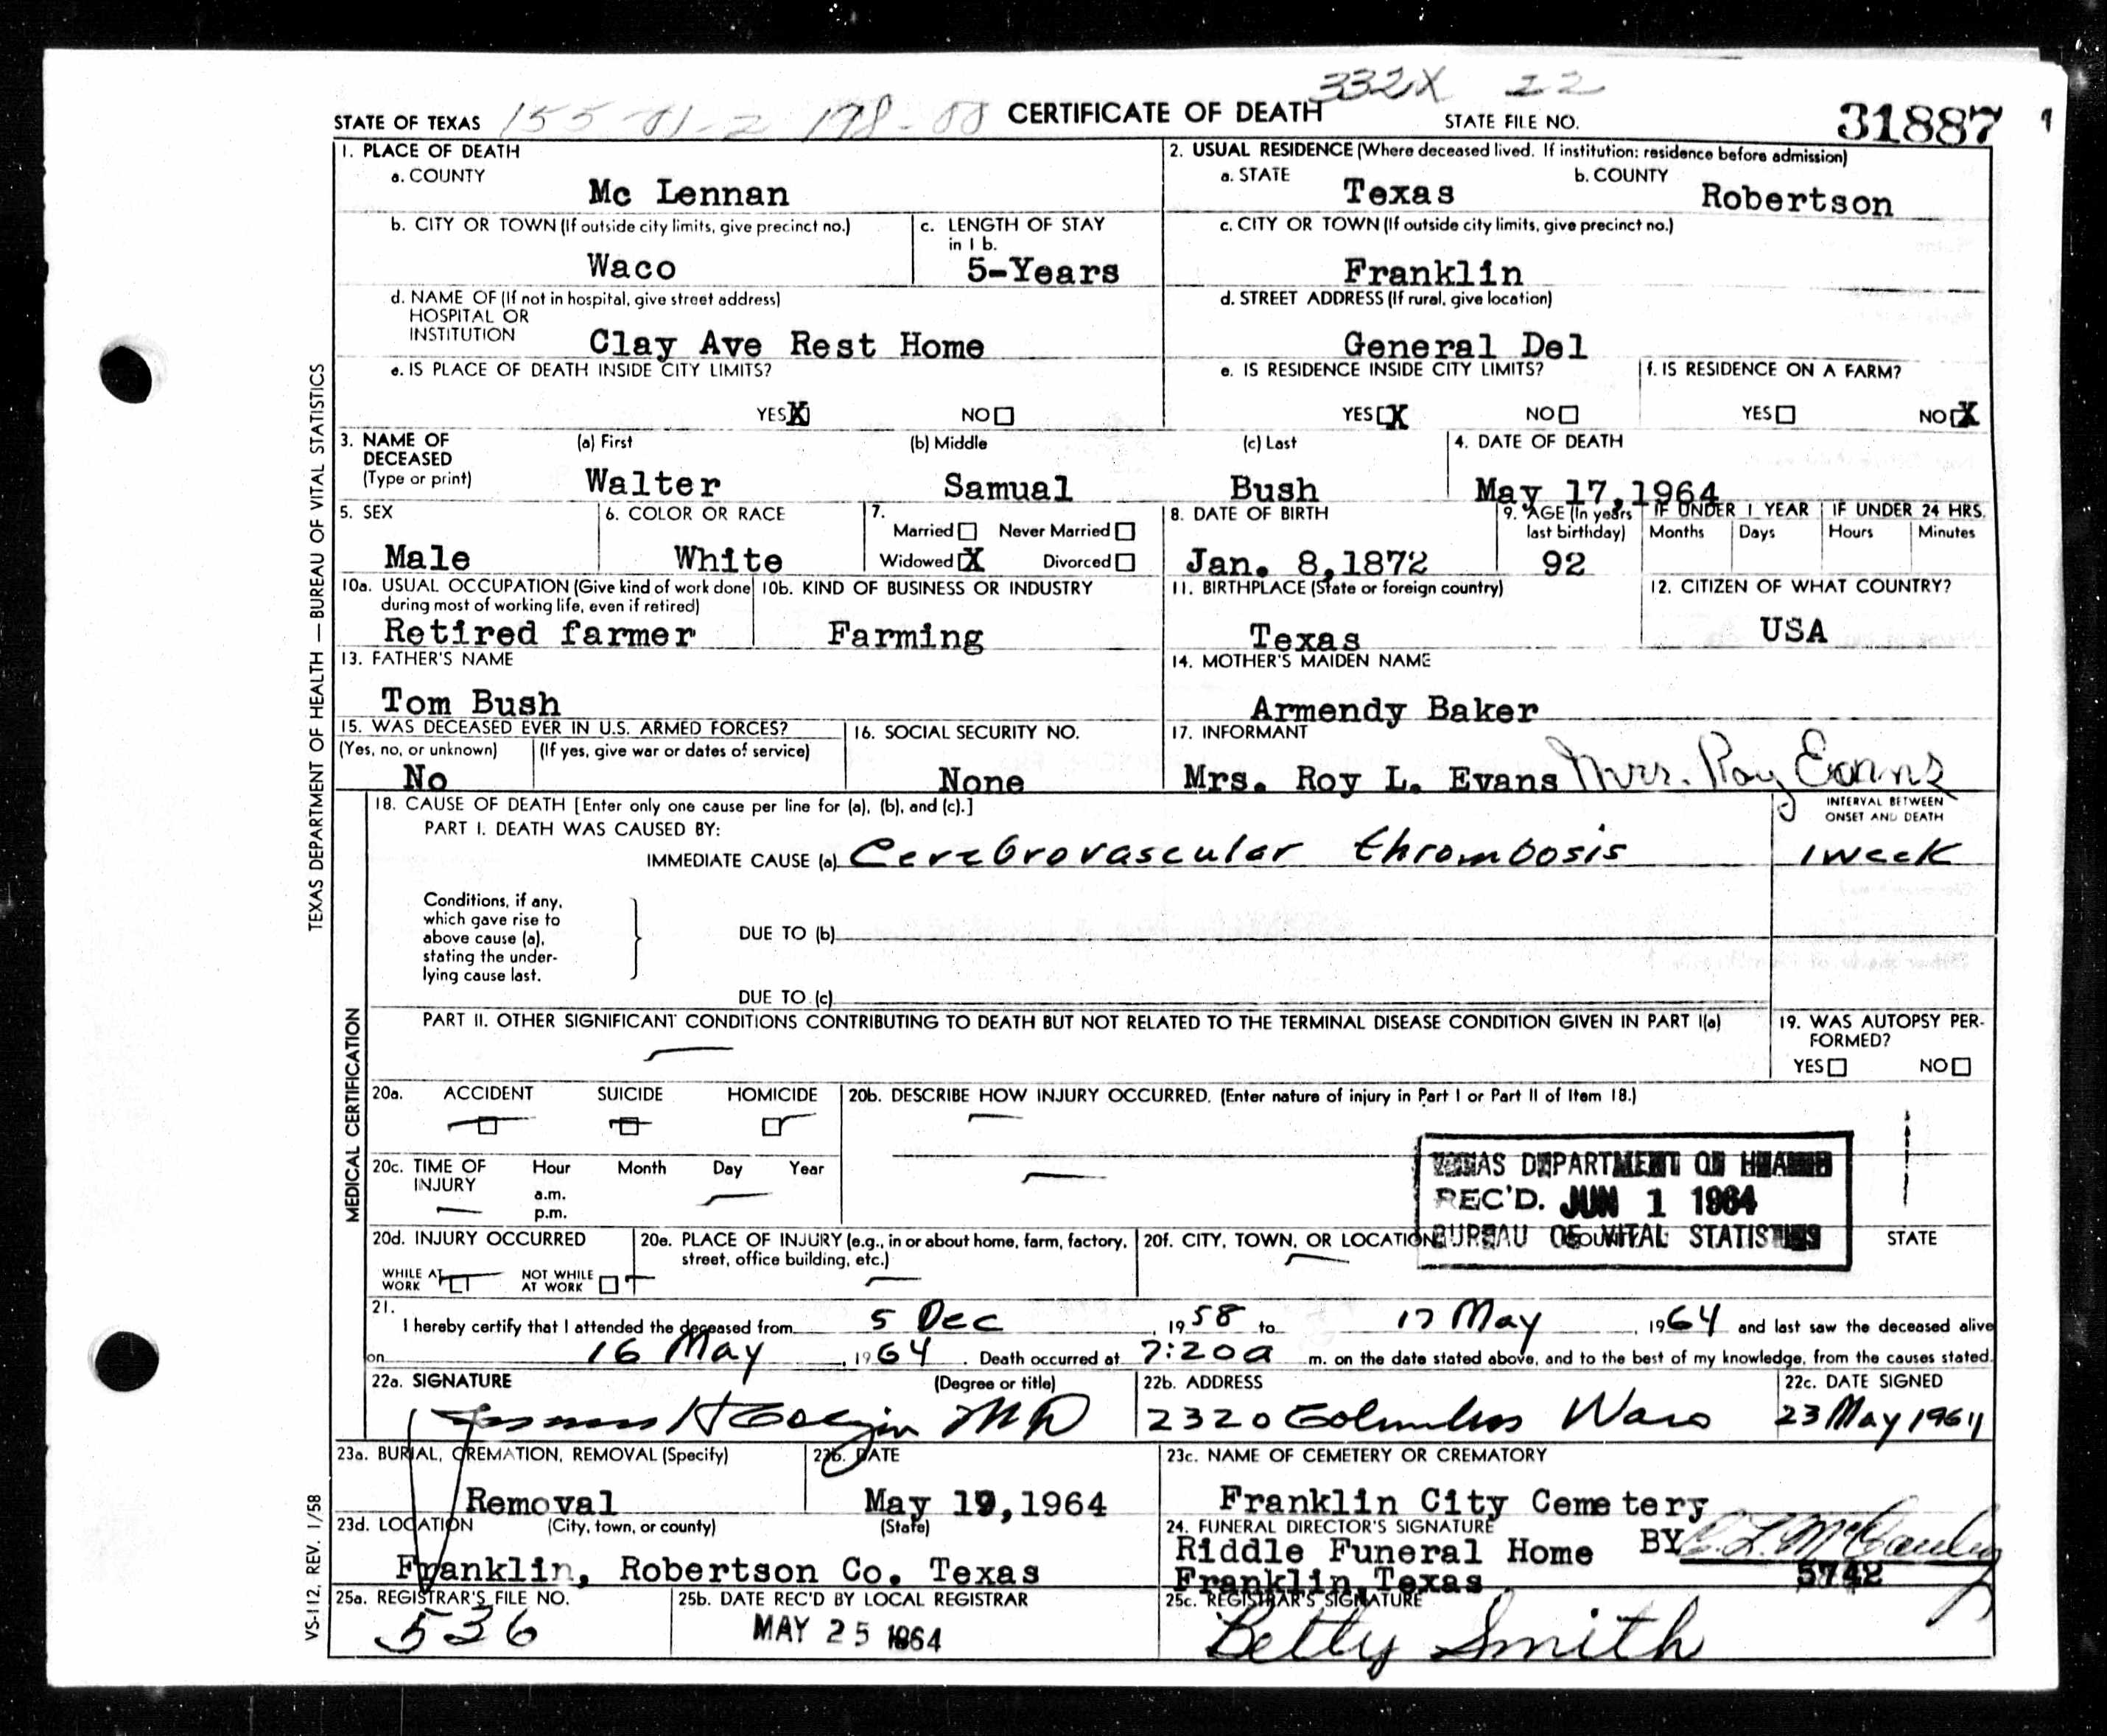 332X 22
STATE OF TEXAS CERTIFICATE OF DEATH STATE FILE NO. 31887
1. PLACE OF DEATH
a. COUNTY
Mc Lennan
2. USUAL RESIDENCE (Where deceased lived. If institution: residence before admission)
a. STATE b. COUNTY
Texas Robertson
b. CITY OR TOWN (If outside city limits, give precinct no.)
Waco
c. LENGTH OF STAY
in 1 b.
5-Years
c. CITY OR TOWN (If outside city limits, give precinct no.)
Franklin
d. NAME OF (If not in hospital, give street address)
HOSPITAL OR
INSTITUTION Clay Ave Rest Home
d. STREET ADDRESS (If rural, give location)
General Del
e. IS PLACE OF DEATH INSIDE CITY LIMITS?
YES X NO
e. IS RESIDENCE INSIDE CITY LIMITS?
YES X NO
f. IS RESIDENCE ON A FARM?
YES NO X
3. NAME OF (a) First (b) Middle (c) Last
DECEASED
(Type or print) Walter Samual Bush
4. DATE OF DEATH
May 17,1964
5. SEX
Male
6. COLOR OR RACE
White
7.
Married Never Married
Widowed X Divorced
8. DATE OF BIRTH
Jan. 8,1872
9. AGE (In years
last birthday)
92
IF UNDER 1 YEAR
Months Days
IF UNDER 24 HRS.
Hours Minutes
10a. USUAL OCCUPATION (Give kind of work done
during most of working life, even if retired)
Retired farmer
10b. KIND OF BUSINESS OR INDUSTRY
Farming
11. BIRTHPLACE (State or foreign country)
Texas
12. CITIZEN OF WHAT COUNTRY?
USA
13. FATHER'S NAME
Tom Bush
14. MOTHER'S MAIDEN NAME
Armendy Baker
15. WAS DECEASED EVER IN U.S. ARMED FORCES?
(Yes, no, or unknown) (If yes, give war or dates of service)
No
16. SOCIAL SECURITY NO.
None
17. INFORMANT
Mrs. Roy L. Evans Mrs. Roy Evans
18. CAUSE OF DEATH [Enter only one cause per line for (a), (b), and (c).]
PART I. DEATH WAS CAUSED BY:
IMMEDIATE CAUSE (a) Cerebrovascular thrombosis
INTERVAL BETWEEN
ONSET AND DEATH
1 week
Conditions, if any,
which gave rise to
above cause (a),
stating the under-
lying cause last.
DUE TO (b)
DUE TO (c)
PART II. OTHER SIGNIFICANT CONDITIONS CONTRIBUTING TO DEATH BUT NOT RELATED TO THE TERMINAL DISEASE CONDITION GIVEN IN PART I(a)
19. WAS AUTOPSY PER-
FORMED?
YES NO
20a. ACCIDENT SUICIDE HOMICIDE
20b. DESCRIBE HOW INJURY OCCURRED. (Enter nature of injury in Part I or Part II of Item 18.)
20c. TIME OF Hour Month Day Year
INJURY
a.m.
p.m.
TEXAS DEPARTMENT OF HEALTH
REC'D. JUN 1 1964
BUREAU OF VITAL STATISTICS
20d. INJURY OCCURRED
WHILE AT
WORK
NOT WHILE
AT WORK
20e. PLACE OF INJURY (e.g., in or about home, farm, factory,
street, office building, etc.)
20f. CITY, TOWN, OR LOCATION COUNTY STATE
21.
I hereby certify that I attended the deceased from 5 Dec , 1958 to 17 May , 1964 and last saw the deceased alive
on 16 May , 1964 . Death occurred at 7:20 a m. on the date stated above, and to the best of my knowledge, from the causes stated.
22a. SIGNATURE (Degree or title)
MD
22b. ADDRESS
2320 Columbus Waco
22c. DATE SIGNED
23 May 1964
23a. BURIAL, CREMATION, REMOVAL (Specify)
Removal
23b. DATE
May 19,1964
23c. NAME OF CEMETERY OR CREMATORY
Franklin City Cemetery
23d. LOCATION (City, town, or county) (State)
Franklin, Robertson Co. Texas
24. FUNERAL DIRECTOR'S SIGNATURE
Riddle Funeral Home BY
Franklin, Texas 5742
25a. REGISTRAR'S FILE NO.
536
25b. DATE REC'D BY LOCAL REGISTRAR
MAY 25 1964
25c. REGISTRAR'S SIGNATURE
Betty Smith
TEXAS DEPARTMENT OF HEALTH — BUREAU OF VITAL STATISTICS
MEDICAL CERTIFICATION
VS-112, REV. 1/58